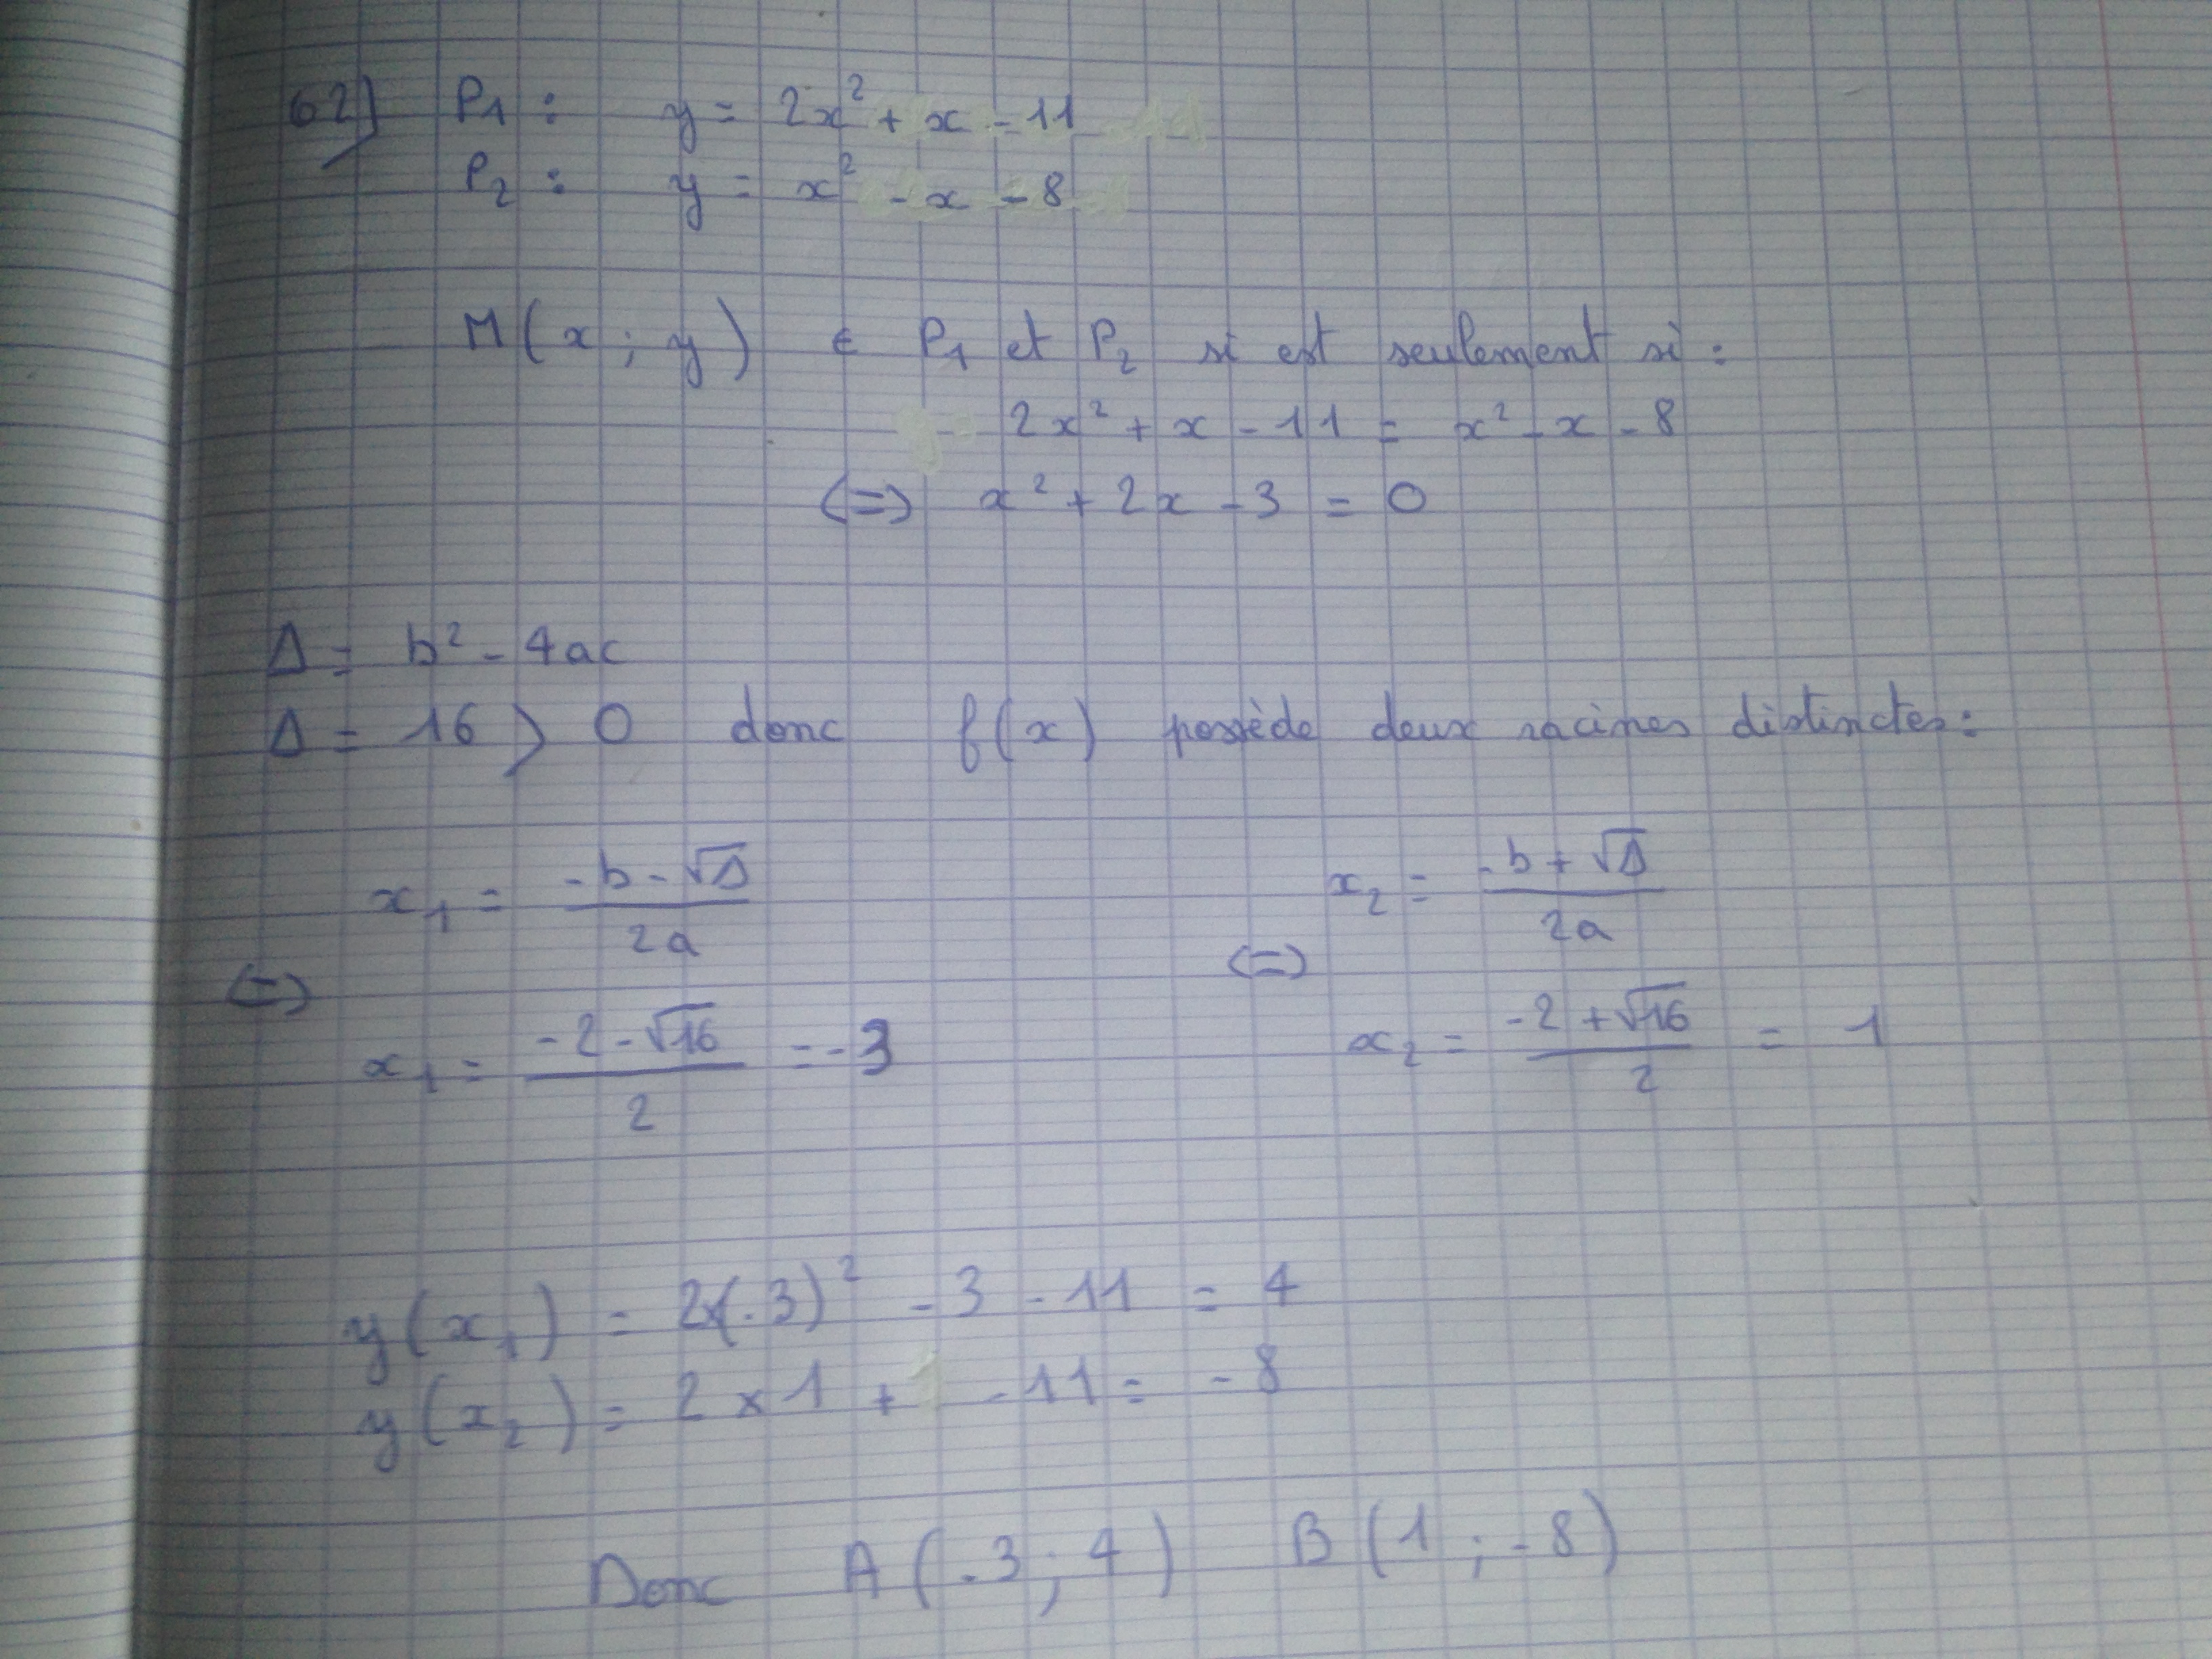 62) P1 : y = 2x² + x - 11
P2 : y = x² - x - 8
M(x ; y) ∈ P1 et P2 si est seulement si :
2x² + x - 11 = x² - x - 8
(=) x² + 2x - 3 = 0
Δ = b² - 4ac
Δ = 16 > 0 donc f(x) possède deux racines distinctes :
x1 = (-b - √Δ) / 2a x2 = (-b + √Δ) / 2a
(=) x1 = (-2 - √16) / 2 = -3 (=) x2 = (-2 + √16) / 2 = 1
y(x1) = 2x(-3)² - 3 - 11 = 4
y(x2) = 2 x 1 + - 11 = - 8
Donc A(-3 ; 4) B(1 ; -8)